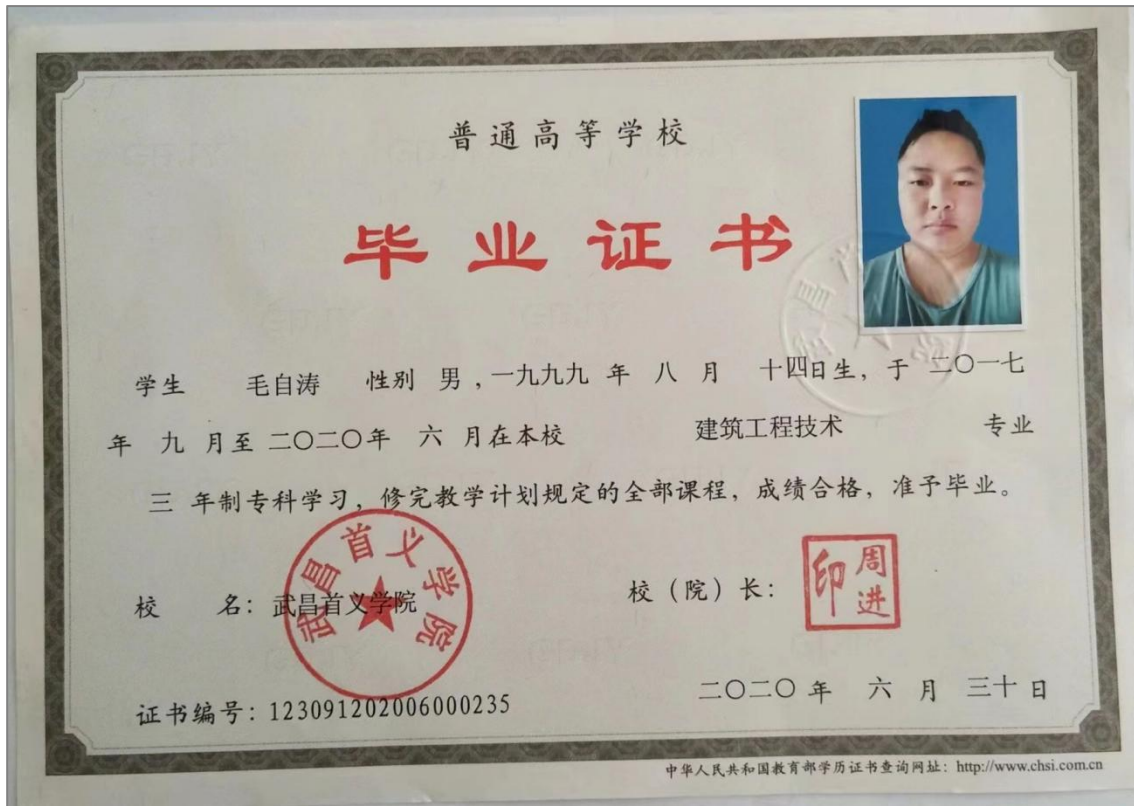 普通高等学校
毕业证书
学生 毛自涛 性别 男，一九九九 年 八 月 十四日生，于 二〇一七
年 九 月至 二〇二〇年 六 月在本校 建筑工程技术 专业
三 年制专科学习，修完教学计划规定的全部课程，成绩合格，准予毕业。
武昌首义学院
校 名：武昌首义学院
校（院）长：
周进印
证书编号：123091202006000235
二〇二〇 年 六 月 三十 日
中华人民共和国教育部学历证书查询网址：http://www.chsi.com.cn